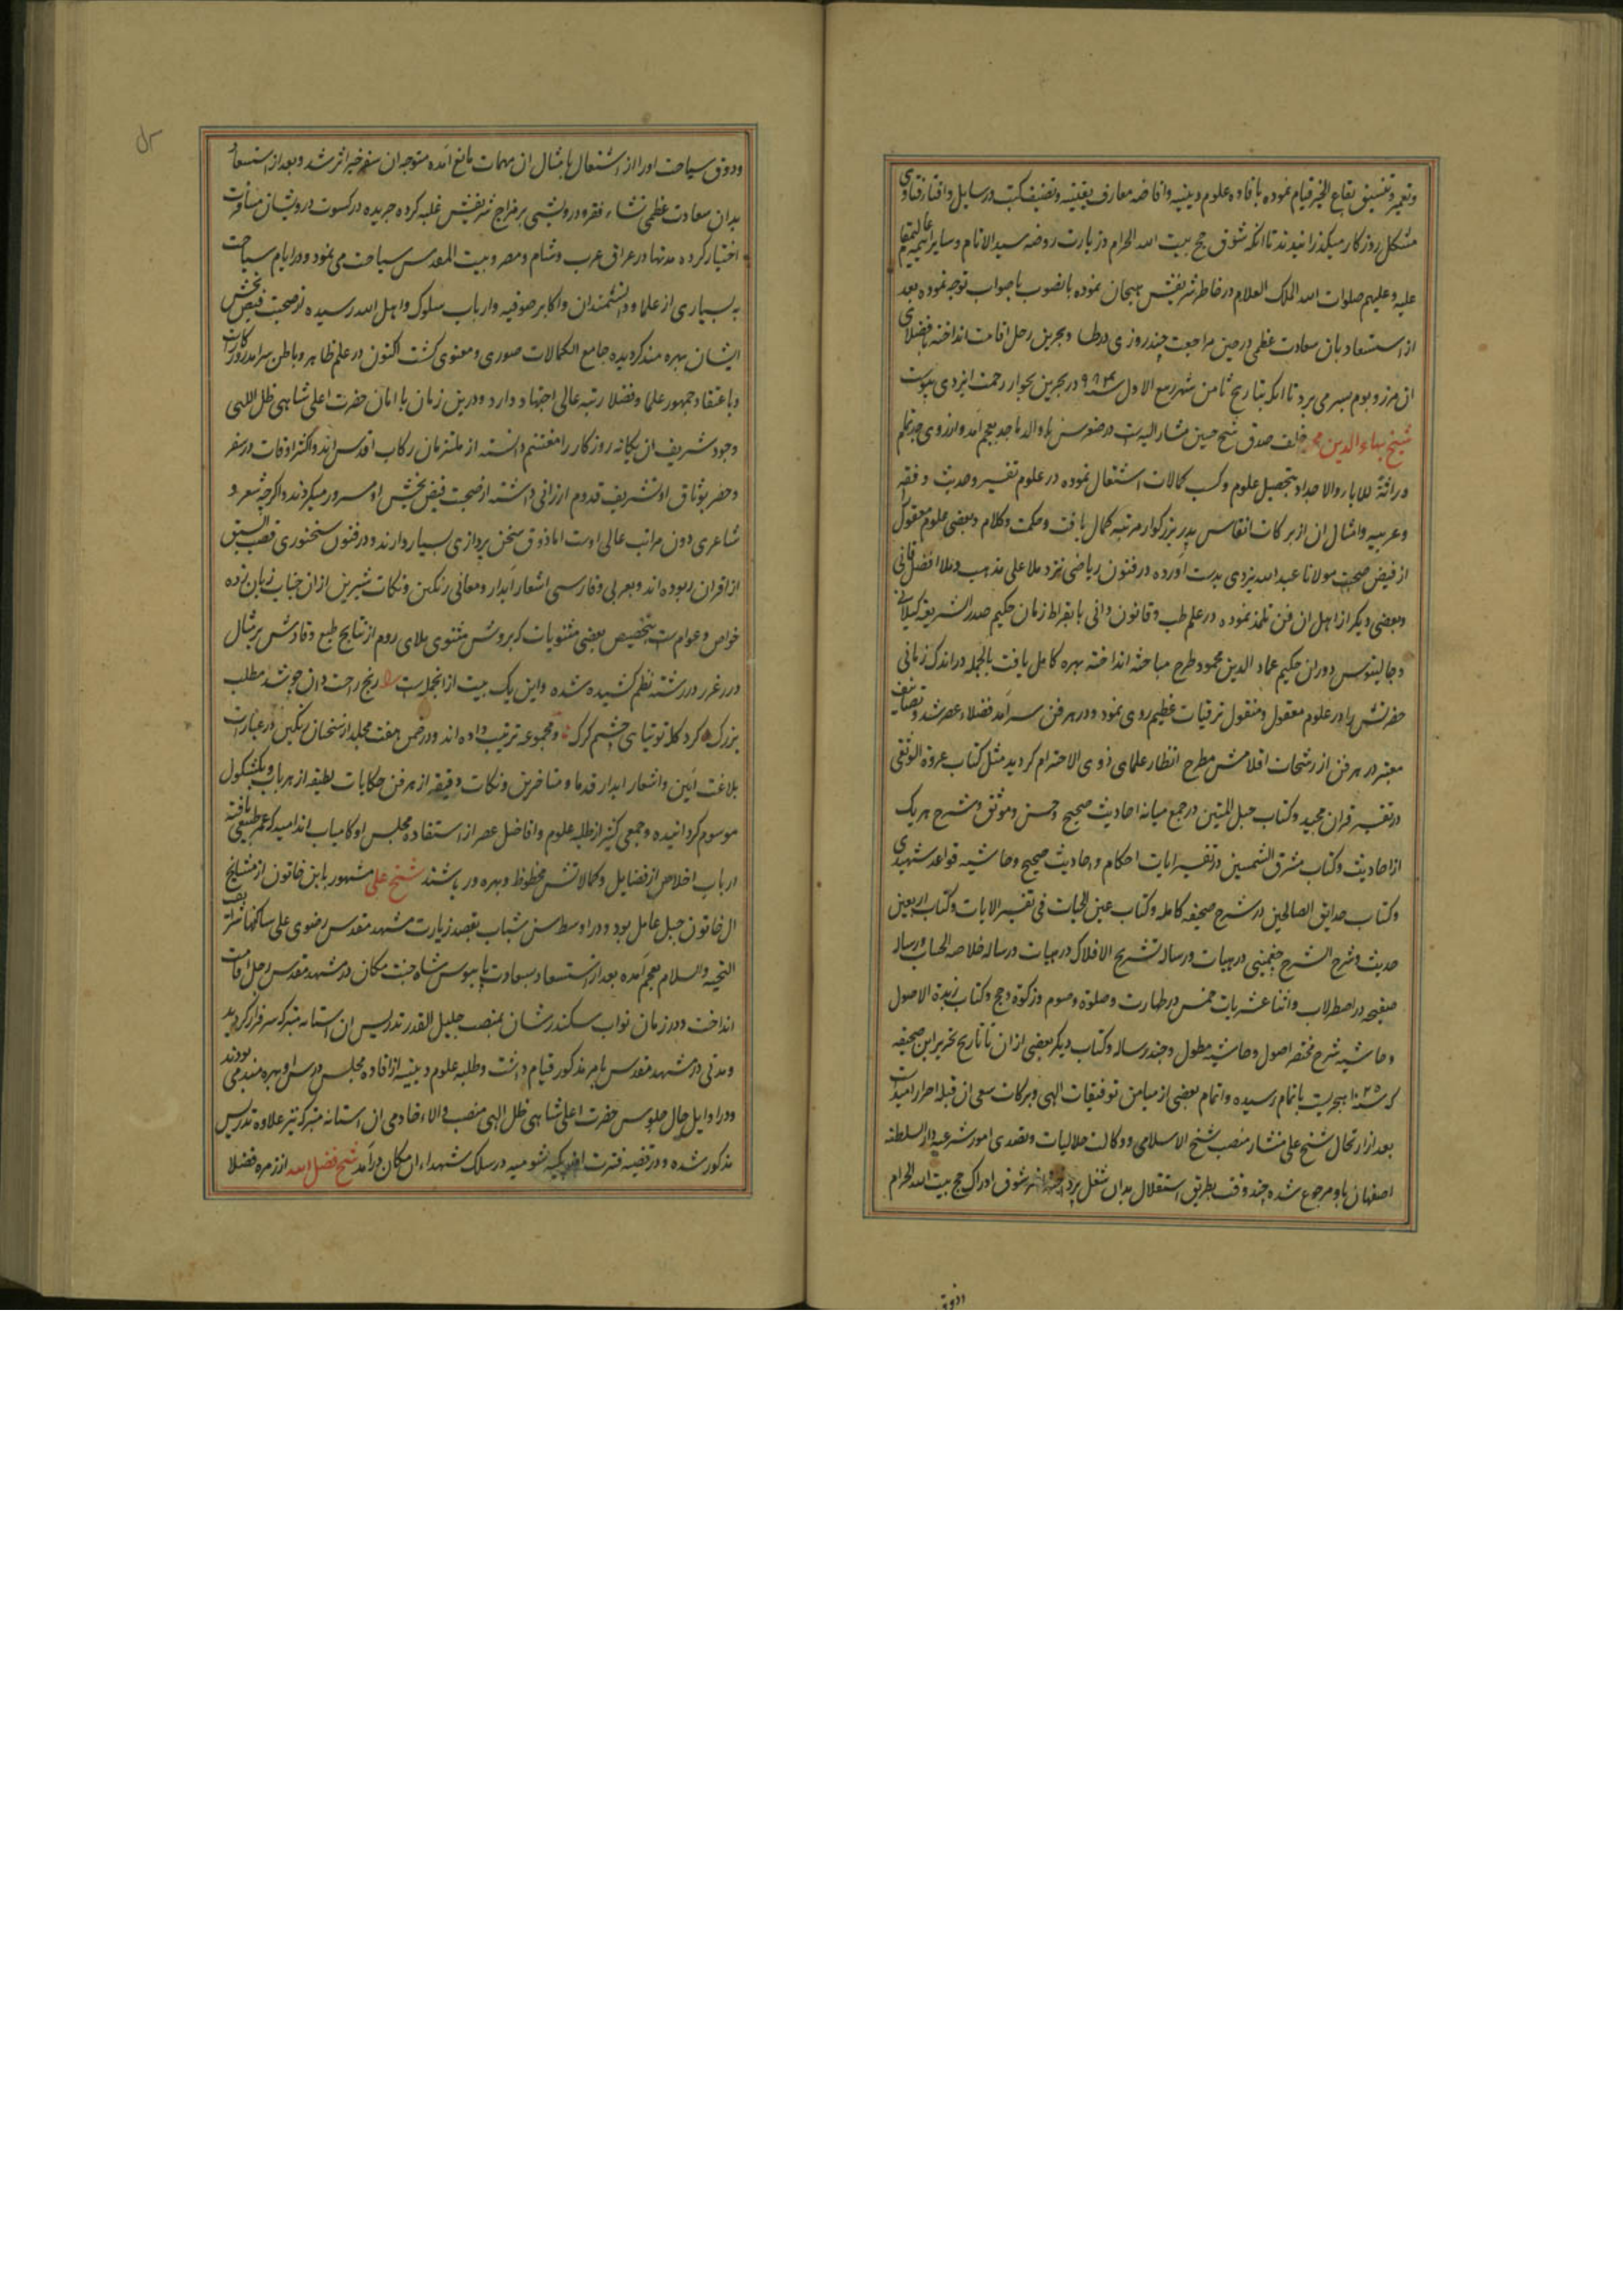 وتعمیر و تنسیق بقاع الخیر قیام نموده بافاده علوم دینیه و افاضه معارف یقینیه و تصنیف کتب و رسایل و افتار فتاوی
مشکل روزکار میکذرانیدند تا انکه شوق حج بیت الله الحرام و زیارت روضه سید الانام و سایر ائمه
علیه و علیهم صلوات الله الملک العلام در خاطر شریفش هیجان نموده بانصوب باصواب توجه نموده بعد
از استسعاد بان سعادت عظمی در حین مراجعت چند روزی در و بحرین رحل اقامت انداخته با فضلای
ان مرز و بوم بسر می برد تا انکه بتاریخ ثامن شهر ربیع الاول سنه ۹۸۴ در بحرین بجوار رحمت ایزدی پیوست
شیخ بهاء الدین محمد خلف صدق شیخ حسین مشار الیه است در صغر سن با والد ماجد بعجم آمد و از روی جد تمام
وراثة للاباء والاجداد بتحصیل علوم و کسب کمالات اشتغال نموده در علوم تفسیر و حدیث و فقه
و عربیه و امثال ان از برکات انفاس پدر بزرکوار مرتبه کمال یافت و حکمت و کلام و بعضی علوم معقول
از فیض صحبت مولانا عبد الله یزدی بدست آورده در فنون ریاضی نزد ملا علی مذهب و ملا افضل قاینی
و بعضی دیکر از اهل ان فن تلمذ نموده در علم طب و قانون دانی با بقراط زمان حکیم صدر الشریعه کیلانی
و جالینوس دوران حکیم عماد الدین محمود طرح مباحثه انداخته بهره کامل یافت بالجمله در اندک زمانی
حضرتش را در علوم معقول و منقول ترقیات عظیم روی نمود و در هر فن سرآمد فضلاء عصر شد و تصانیف
معتبر در هر فن از رشحات اقلامش مطرح انظار علمای ذوی الاحترام کردید مثل کتاب عروة الوثقی
در تفسیر قران مجید و کتاب حبل المتین در جمع میانه احادیث صحیح و حسن و موثق و شرح هر یک
از احادیث و کتاب مشرق الشمسین در تفسیر ایات احکام و احادیث صحیح و حاشیه قواعد شهیدی
و کتاب حدایق الصالحین در شرح صحیفه کامله و کتاب عین الحیات فی تفسیر الایات و کتاب اربعین
حدیث و شرح الشرح چغمینی در هیات و رساله تشریح الافلاک در هیات و رساله خلاصه الحساب و رساله
صفیحه در اصطرلاب و اثنا عشریات خمس در طهارت و صلوة و صوم و زکوة و حج و کتاب زبدة الاصول
و حاشیه شرح مختصر اصول و حاشیه مطول و چند رساله و کتاب دیکر بعضی از ان تا تاریخ تحریر این صحیفه
که سنه ۱۰۲۵ هجریست باتمام رسیده و اتمام بعضی از میامن توفیقات الهی و برکات سعی ان قبله احرار امید است
بعد از ارتحال شیخ علی منشار منصب شیخ الاسلامی و وکالت حلالیات و تصدی امور شرعیه دار السلطنه
اصفهان باو مرجوع شده چند وقت بطریق استقلال بدان شغل شوق ادراک حج بیت الله الحرام
و ذوق
و ذوق سیاحت او را از اشتغال بامثال ان مهمات مانع آمده متوجه ان سفر خیر اثر شد و بعد از استسعاد
بدان سعادت عظمی نشاء فقر و درویشی بر مزاج شریفش غلبه کرده جریده در کسوت درویشان مسافرت
اختیار کرده مدتها در عراق عرب و شام و مصر و بیت المقدس سیاحت می نمود و در ایام سیاحت
به بسیاری از علما و دانشمندان و اکابر صوفیه و ارباب سلوک و اهل الله رسیده از صحبت فیض بخش
ایشان بهره مند کردیده جامع الکمالات صوری و معنوی کشت اکنون در علم ظاهر و باطن سرآمد روزکارست
و باعتقاد جمهور علما و فضلا رتبه عالی اجتهاد دارد و درین زمان با امان حضرت اعلی شاهی ظل اللهی
وجود شریف ان یکانه روزکار را مغتنم دانسته از ملتزمان رکاب اقدس اند و اکثر اوقات در سفر
و حضر بوثاق او تشریف قدوم ارزانی داشته از صحبت فیض بخش او مسرور میکردند و اکرچه شعر و
شاعری دون مراتب عالی اوست اما ذوق سخن پردازی بسیار دارند و در فنون سخنوری قصب السبق
از اقران ربوده اند و بعربی و فارسی اشعار آبدار و معانی رنکین و نکات شیرین از ان جناب زبان زده
خواص و عوام ست بتخصیص بعضی مثنویات که بروش مثنوی ملای روم از نتایج طبع وقادش بر مثال
درر غرر در رشته نظم کشیده شده و این یک بیت از انجمله است رنج راحت دان چو شد مطلب
بزرک کرد کله توتیای چشم کرک و مجموعه ترتیب داده اند و در ضمن هفت مجلد از سخنان رنکین و عبارات
بلاغت آیین و اشعار ابدار قدما و متاخرین و نکات دقیقه از هر فن حکایات لطیفه از هر باب و بکشکول
موسوم کردانیده و جمعی کثیر از طلبه علوم و افاضل عصر از استفاده مجلس او کامیاب اند امید که عمر طبیعی یافته
ارباب اخلاص از فضایل و کمالاتش محظوظ و بهره ور باشند شیخ علی مشهور بابن خاتون از مشایخ
ال خاتون جبل عامل بود و در اواسط سن شباب بقصد زیارت مشهد مقدس رضوی علی ساکنها شرایف
التحیه والسلام بعجم آمده بعد از استسعاد بسعادت پابوس شاه جنت مکان در مشهد مقدس رحل اقامت
انداخت و در زمان نواب سکندرشان بمنصب جلیل القدر تدریس ان استانه متبرکه سرفراز کردید
و مدتی در مشهد مقدس بامر مذکور قیام داشت و طلبه علوم دینیه از افاده مجلس درس او بهره مند می بودند
و در اوایل حال جلوس حضرت اعلی شاهی ظل الهی منصب والاء خادمی ان استانه متبرکه نیز علاوه تدریس
مذکور شده و در قضیه فترت اوزبکیه شومیه در سلک شهداء ان مکان درآمد شیخ فضل الله از زمره فضلا